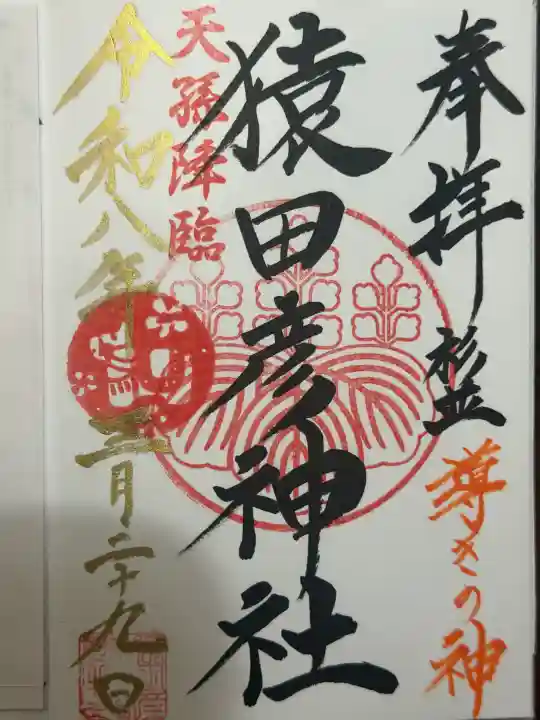 奉拝 杉並
導きの神
猿田彦神社
天孫降臨
令和八年 三月二十九日